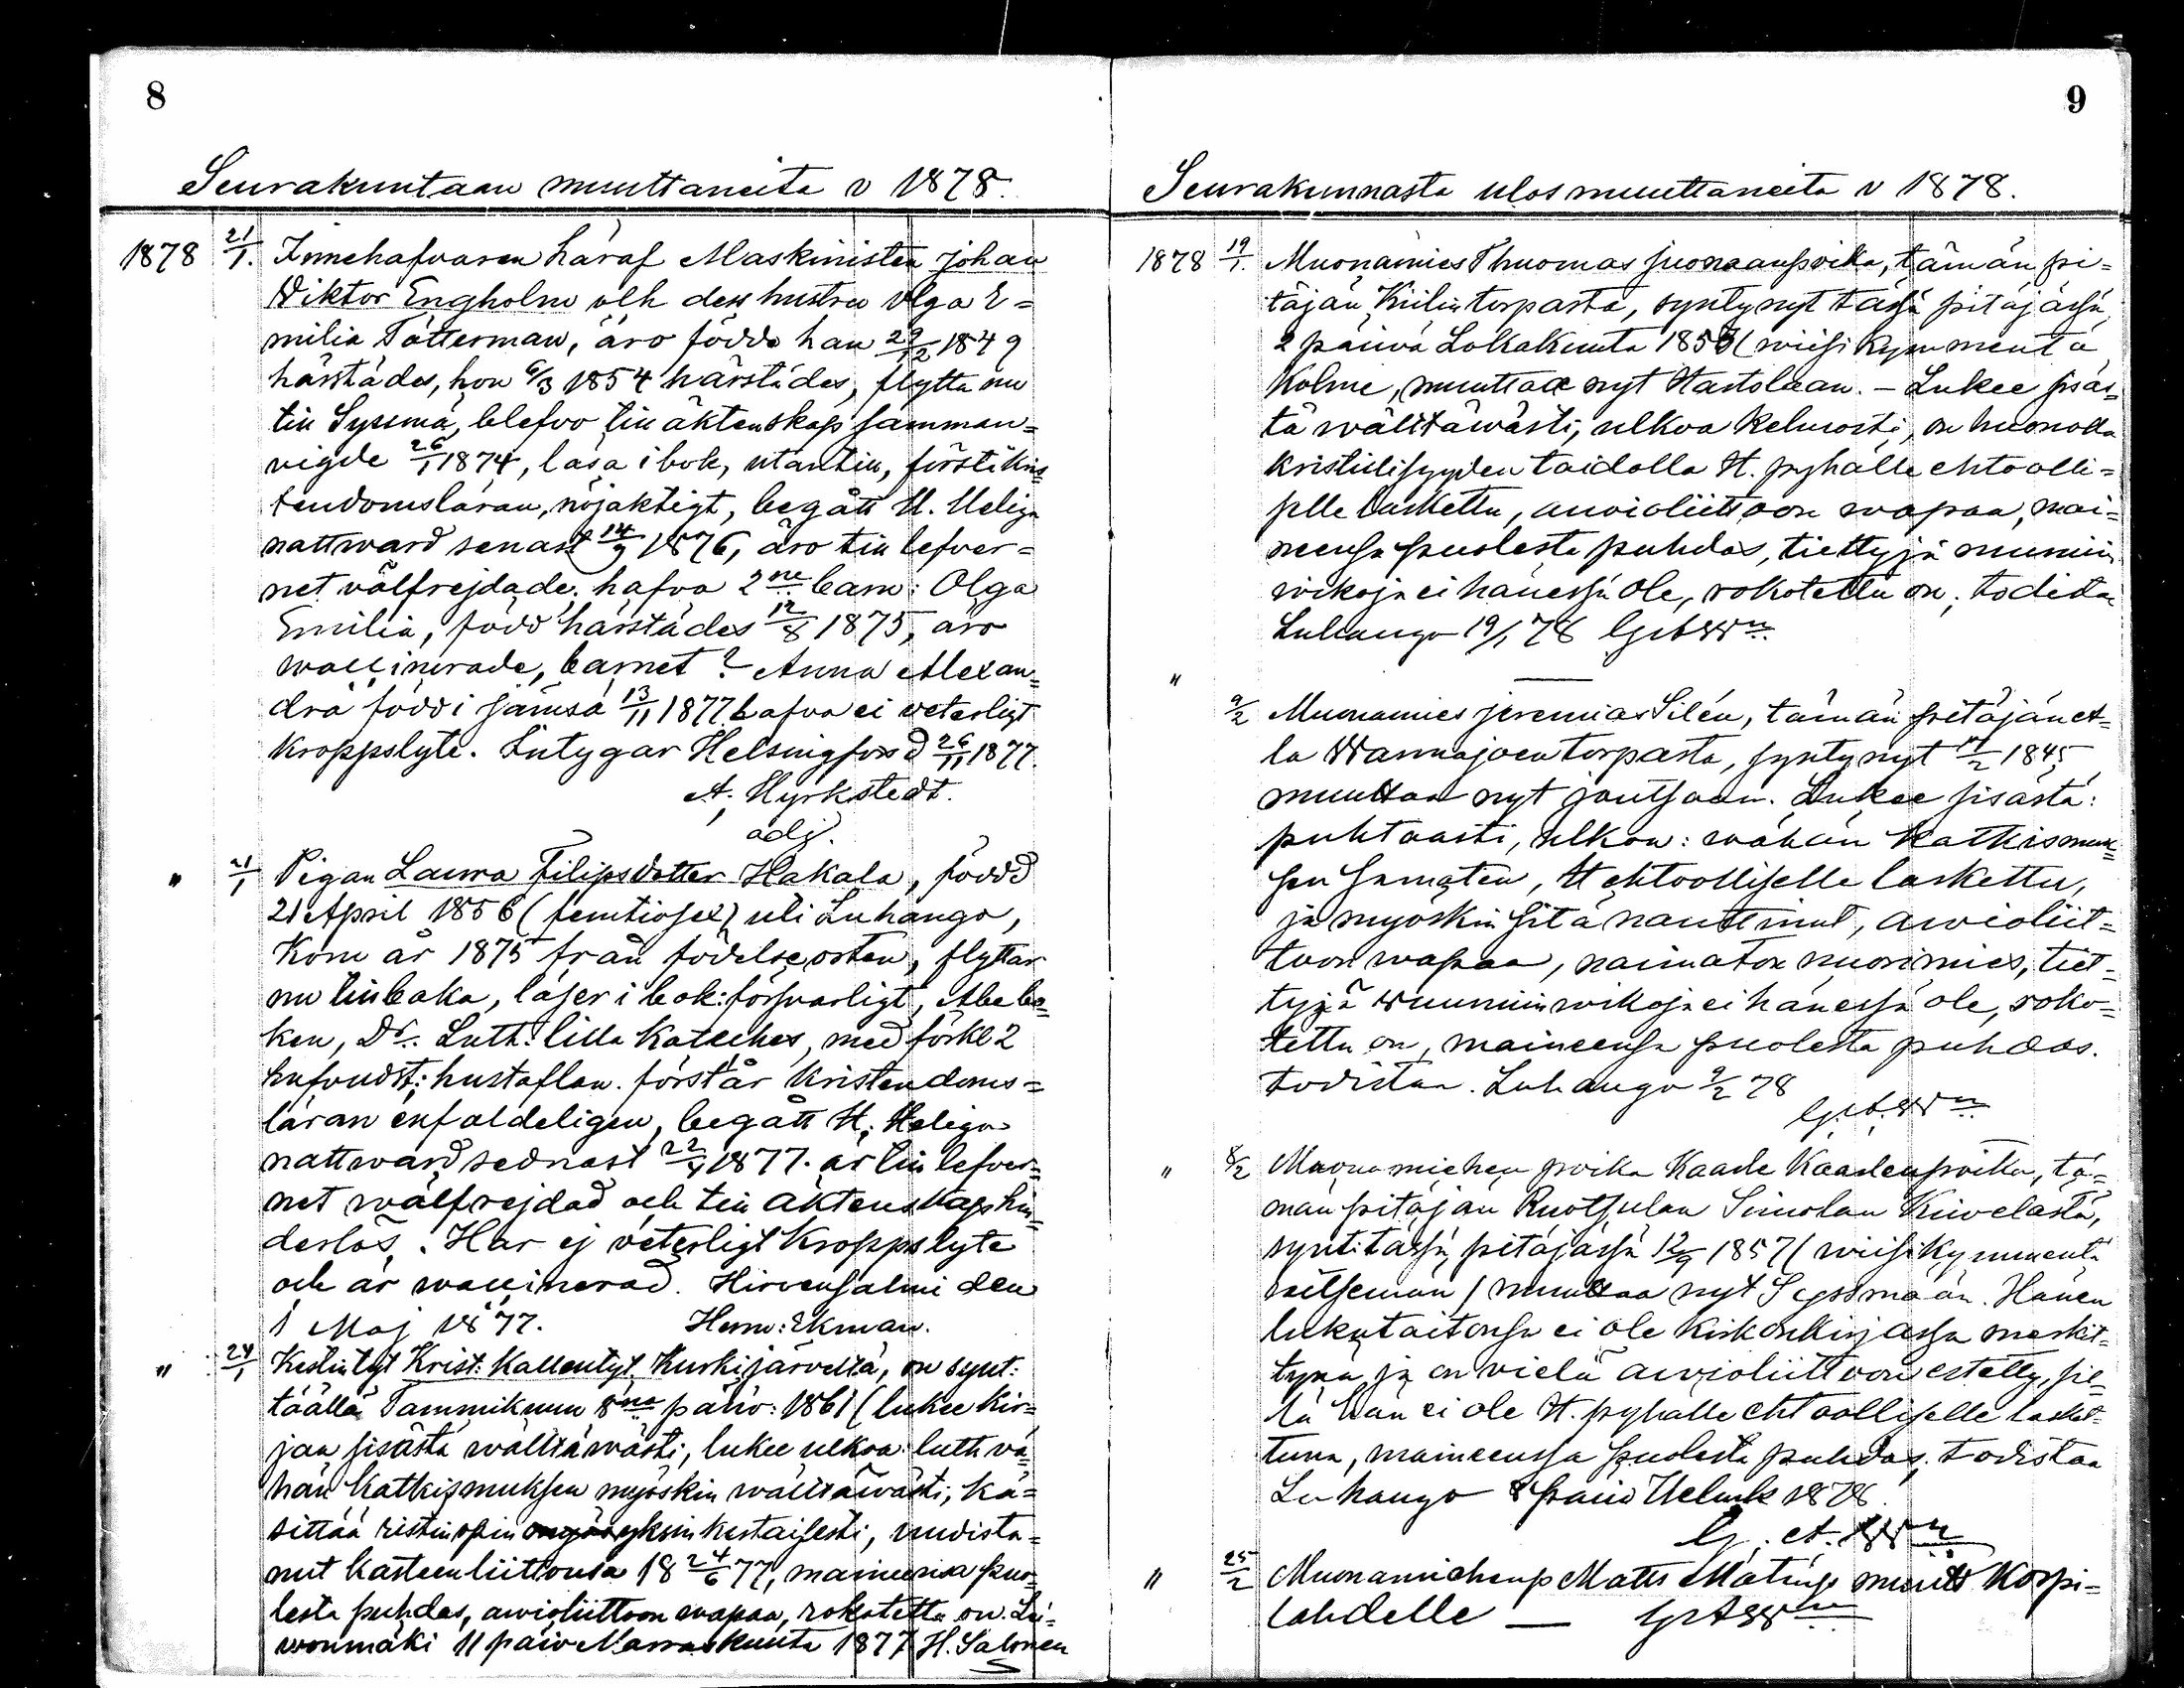 8
Seurakuntaan muuttaneita v 1878.
1878 21/1. Innehafvaren häraf Maskinisten Johan
Viktor Engholm och dess hustru Olga E=
milia Totterman, äro födde han 29/12 1849
härstädes, hon 6/3 1854 härstädes, flytta nu
till Sysmä, blefvo till äktenskap samman=
vigde 26/1 1874, läsa i bok, utantill, förstå kris=
tendomsläran, nöjaktigt, begått H. Heliga
nattward senast 14/9 1876, äro till lefver=
net välfrejdade, hafva 2ne barn: Olga
Emilia, född härstädes 12/8 1875, äro
waccinerade, barnet? Anna Alexan=
dra född i Jämsä 13/11 1877 hafva ei veterligt
kroppslyte. Intygar Helsingfors d 26/11 1877.
A. Hyrkstedt.
adj.
" 21/1 Pigan Laura Filipsdotter Hakala, född
21 April 1856 (femtiosex) uti Luhango,
Kom år 1875 från födelseorten, flyttar
nu tillbaka, läser i bok: försvarligt, Abebo=
ken, Dr. Luth: lilla Kateches, med förkl 2
hufvudst; hustaflan. förstår kristendoms=
läran enfaldeligen, begått H. Heliga
nattward sednast 22/4 1877. är till lefver=
net wälfrejdad och till äktenskap hin=
derslös. Har ej veterligt kroppslyte
och är waccinerad. Hirvensalmi den
1 Maj 1877. Herm: Ekman.
" 24/1 Kestintyt Krist: Kallentyt Kurkijärveltä, on synt:
täällä Tammikuun 8na päiv: 1861 (lukee kir=
jaa sisästä wälttäwästi, lukee ulkoa: luth vä=
hän Katkismuksen myöskin wälttäwästi, kä=
sittää ristinopin yksinkertaisesti, uudista=
nut kasteenliittonsa 18 24/6 77, maineensa puo=
lesta puhdas, awioliittoon wapaa, rokotettu on. Lei=
wonmäki 11 päiv Marraskuuta 1877 H. Salonen
9
Seurakunnasta ulosmuuttaneita v 1878.
1878 19/1. Muonamies Thuomas Juonaanpoika, tämän pi=
täjän Kiilin torpasta, syntynyt tässä pitäjässä,
2 päiwä Lokakuuta 1853 (wiisi kymmentä
kolme, muuttaa nyt Hartolaan. - Lukee sisäs=
tä wälttäwästi, ulkoa kelwosti, on huonolla
kristillisyyden taidolla H. pyhälle ehtoolli=
selle laskettu, awioliittoon wapaa, mai=
neensa puolesta puhdas, tiettyjä ruumiin
wikoja ei hänessä ole, rokotettu on, todistaa
Luhango 19/1 78 G. A. W n
" 9/2 Muonamies Jeremias Silén, tämän pitäjän et=
lä Wannajoen torpasta, syntynyt 14/2 1845
muuttaa nyt Joutsaan. Lukee sisästä:
puhtaasti, ulkoa: wähän Katkismuk=
sen Summaten, H ehtoolliselle laskettu,
ja myöskin sitä nauttinut, awioliit=
toon wapaa, naimaton nuorimies, tiet=
tyjä ruumiin wikoja ei hänessä ole, roko=
tettu on, maineensa puolesta puhdas.
todistaa. Luhango 9/2 78
G. A. W n
" 8/2 Muonamiehen poika Kaarle Kaarlenpoika, tä=
män pitäjän Ruotsulan Simolan Kiwelästä,
synt: tässä pitäjässä 12/9 1857 (wiisikymmentä
seitsemän) muuttaa nyt Syssmään. Hänen
lukutaitonsa ei ole kirkonkirjassa merkit=
tynä, ja on vielä awioliittoon estetty, sil=
lä hän ei ole H. pyhälle ehtoolliselle lasket=
tuna, maineensa puolesta puhdas, todistaa
Luhango 8 päiv Helmik 1878.
G. A. W n
" 25/2 Muonamiehenp Matts Matinp muutt Korpi=
lahdelle — G A W n